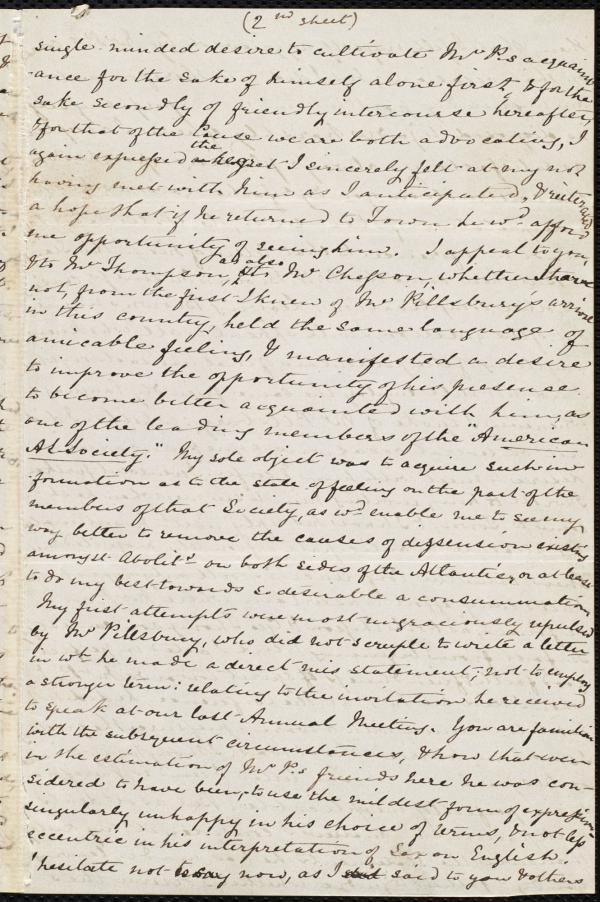 (2nd sheet)
single minded desire to cultivate Mr P.s acquaint
ance for the sake of himself alone first, & for the
sake secondly of friendly intercourse hereafter,
& for that of the Cause we are both advocating, I
again expressed the regret I sincerely felt at my not
having met with him as I anticipated, & reiterated
a hope that if he returned to Town he wd afford
me opportunity of seeing him. I appeal to you,
& to Mr Thompson, as also to Mr Chesson, whether I have
not, from the first I knew of Mr Pillsbury's arrival
in this country, held the same language of
amicable feeling, & manifested a desire
to improve the opportunity of his presence
to become better acquainted with him, as
one of the leading members of the "American
AS. Society." My sole object was to acquire such in
formation as to the state of feeling on the part of the
members of that Society, as wd enable me to see my
way better to remove the causes of dissension existing
amongst Abolitts on both sides of the Atlantic, or at least
to do my best towards so desirable a consummation
My first attempts were most ungraciously repulsed
by Mr Pillsbury, who did not scruple to write a letter
in wh he made a direct mis statement, not to employ
a stronger term: relating to the invitation he received
to speak at our last Annual Meeting. You are familiar
with the subsequent circumstances, & how that even
in the estimation of Mr P.s friends here he was con-
sidered to have been, to use the mildest form of expression
singularly unhappy in his choice of terms, & not less
eccentric in his interpretation of Saxon English.
I hesitate not to say now, as I said to you & others